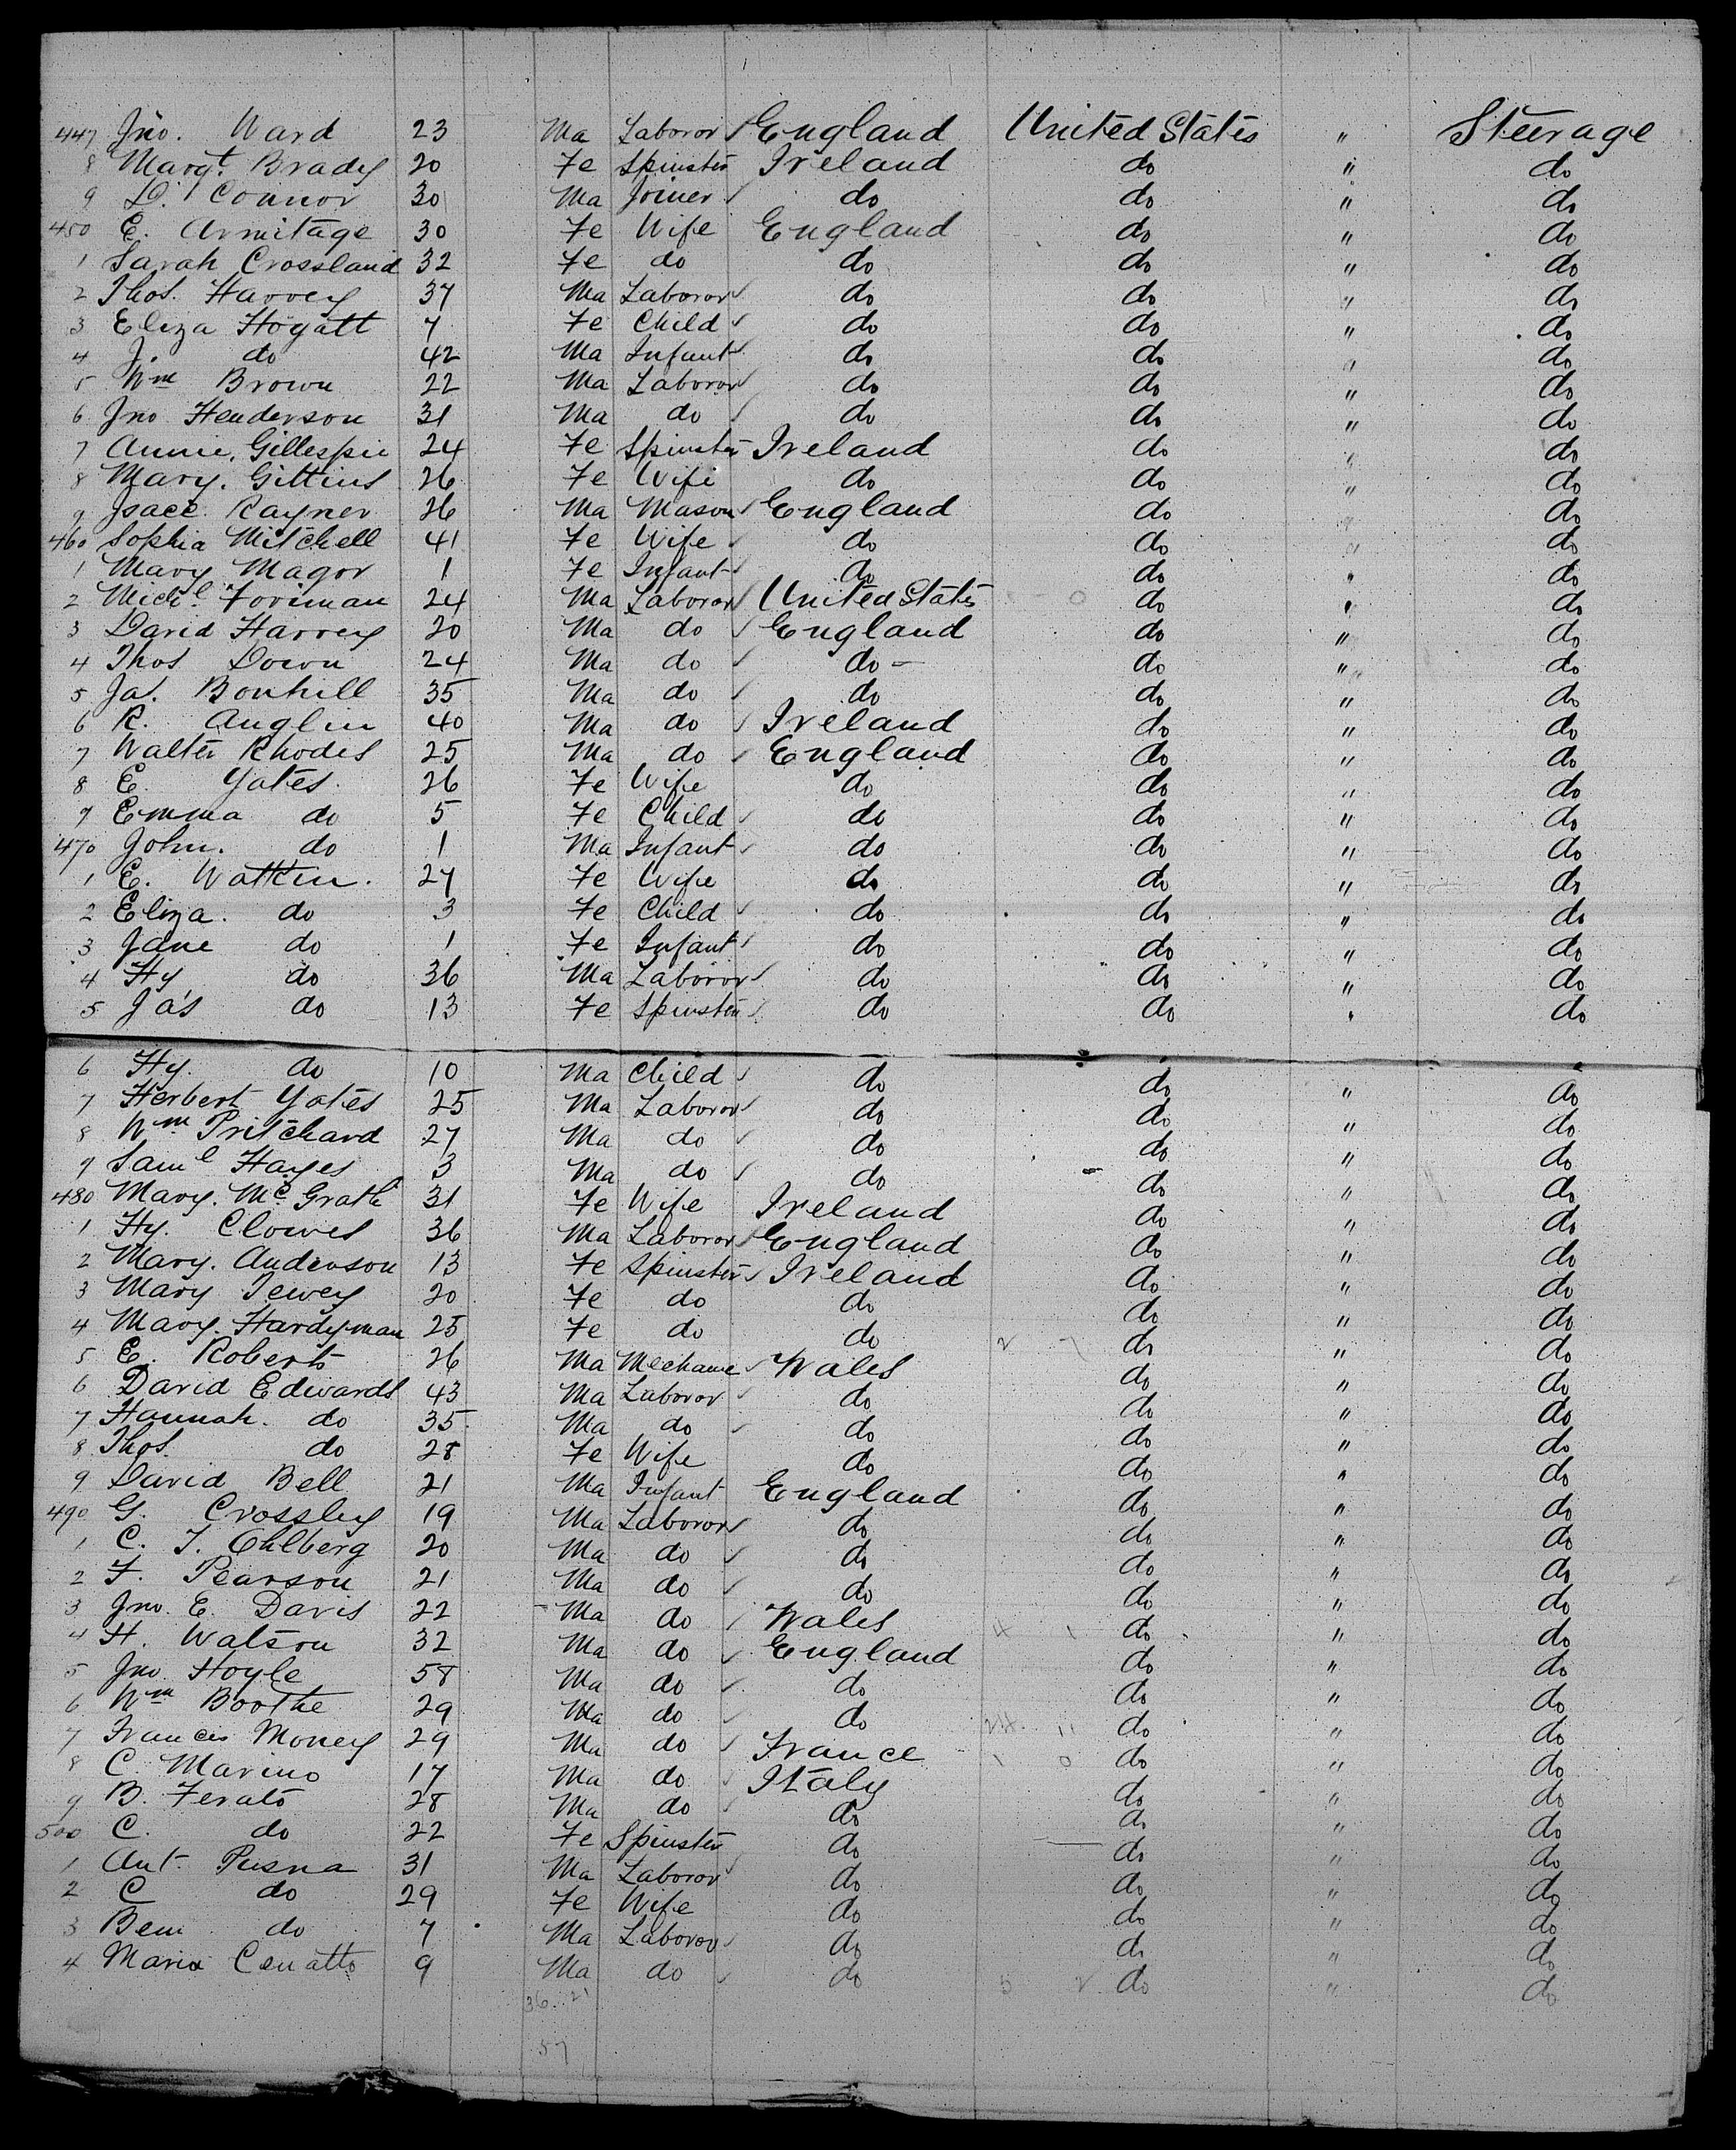 447 Jno. Ward 23 Ma Laboror England United States " Steerage
8 Margt. Brady 20 Fe Spinster Ireland do " do
9 D. Connor 30 Ma Joiner do do " do
450 E. Armitage 30 Fe Wife England do " do
1 Sarah Crossland 32 Fe do do do " do
2 Thos. Harvey 37 Ma Laboror do do " do
3 Eliza Hogatt 7 Fe Child do do " do
4 J. do 42 Ma Infant do do " do
5 Wm Brown 22 Ma Laboror do do " do
6 Jno Henderson 31 Ma do do do " do
7 Annie Gillespie 24 Fe Spinster Ireland do " do
8 Mary. Gittins 26 Fe Wife do do " do
9 Isace Rayner 26 Ma Mason England do " do
460 Sophia Mitchell 41 Fe Wife do do " do
1 Mary Magor 1 Fe Infant do do " do
2 Michl. Foriman 24 Ma Laboror United States do " do
3 David Harvey 20 Ma do England do " do
4 Thos Down 24 Ma do do do " do
5 Ja. Bonhill 35 Ma do do do " do
6 R. Anglin 40 Ma do Ireland do " do
7 Walter Rhodes 25 Ma do England do " do
8 E. Yates 26 Fe Wife do do " do
9 Emma do 5 Fe Child do do " do
470 John. do 1 Ma Infant do do " do
1 E. Watkin. 27 Fe Wife do do " do
2 Eliza. do 3 Fe Child do do " do
3 Jane do 1 Fe Infant do do " do
4 Hy do 36 Ma Laboror do do " do
5 Jas do 13 Fe Spinster do do " do
6 Hy. do 10 Ma Child do do " do
7 Herbert Yates 25 Ma Laboror do do " do
8 Wm Pritchard 27 Ma do do do " do
9 Saml Hayes 3 Ma do do do " do
480 Mary. McGrath 31 Fe Wife Ireland do " do
1 Hy. Clowes 36 Ma Laboror England do " do
2 Mary. Anderson 13 Fe Spinster Ireland do " do
3 Mary Tewey 20 Fe do do do " do
4 Mary. Hardyman 25 Fe do do do " do
5 E. Roberts 26 Ma Mechanic Wales do " do
6 David Edwards 43 Ma Laboror do do " do
7 Hannah. do 35 Ma do do do " do
8 Thos. do 28 Fe Wife do do " do
9 David Bell 21 Ma Infant England do " do
490 G. Crossley 19 Ma Laboror do do " do
1 C. J. Ohlberg 20 Ma do do do " do
2 F. Pearson 21 Ma do do do " do
3 Jno. E. Davis 22 Ma do Wales do " do
4 H. Watson 32 Ma do England do " do
5 Jno Hoyle 58 Ma do do do " do
6 Wm Boothe 29 Ma do do do " do
7 Francis Money 29 Ma do France do " do
8 C. Marino 17 Ma do Italy do " do
9 B. Ferato 28 Ma do do do " do
500 C. do 22 Fe Spinster do do " do
1 Ant. Pusna 31 Ma Laboror do do " do
2 C do 29 Fe Wife do do " do
3 Beni do 7 Ma Laboror do do " do
4 Maria Cenatto 9 Ma do do do " do
36 21
57